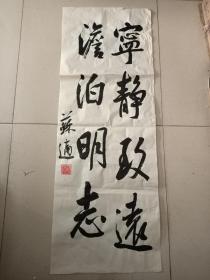 寧静致遠
澹泊明志
蘇適